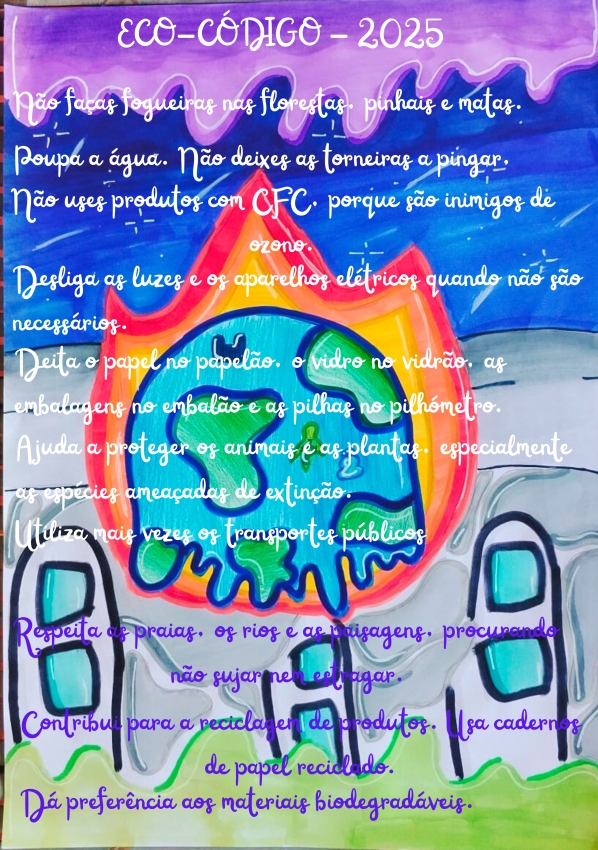 ECO-CÓDIGO - 2025
Não faças fogueiras nas florestas, pinhais e matas.
Poupa a água. Não deixes as torneiras a pingar.
Não uses produtos com CFC, porque são inimigos de
ozono.
Desliga as luzes e os aparelhos elétricos quando não são
necessários.
Deita o papel no papelão, o vidro no vidrão, as
embalagens no embalão e as pilhas no pilhómetro.
Ajuda a proteger os animais e as plantas, especialmente
as espécies ameaçadas de extinção.
Utiliza mais vezes os transportes públicos
Respeita as praias, os rios e as paisagens, procurando
não sujar nem estragar.
Contribui para a reciclagem de produtos. Usa cadernos
de papel reciclado.
Dá preferência aos materiais biodegradáveis.